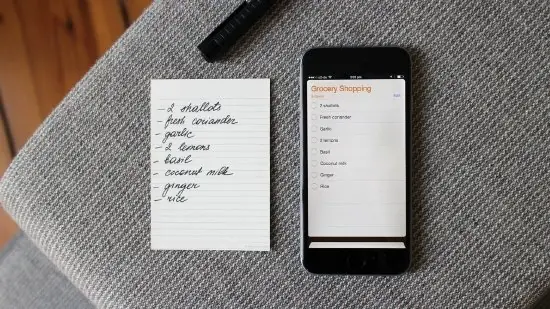 - 2 shallots
- fresh coriander
- garlic
- 2 lemons
- basil
- coconut milk
- ginger
- rice
Grocery Shopping
Edit
2 shallots
Fresh coriander
Garlic
2 lemons
Basil
Coconut milk
Ginger
Rice